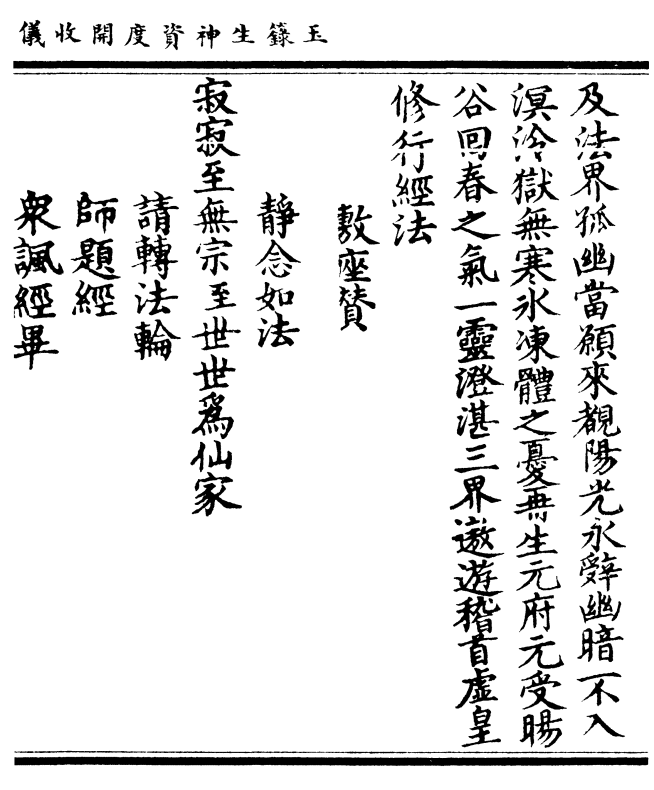 玉籙生神資度開收儀
及法界孤幽當願來覩陽光永辭幽暗一不入
溟泠獄無寒氷凍體之憂再生元府元受暘
谷回春之氣一靈澄湛三界遨遊稽首虛皇
修行經法
敷座赞
靜念如法
寂寂至無宗至世世爲仙家
請轉法輪
師題經
衆諷經畢